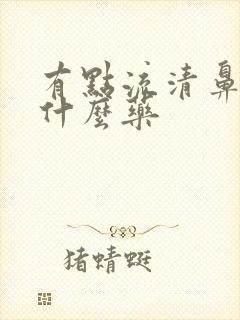 有點流清鼻
什麼藥
猪蜻蜓